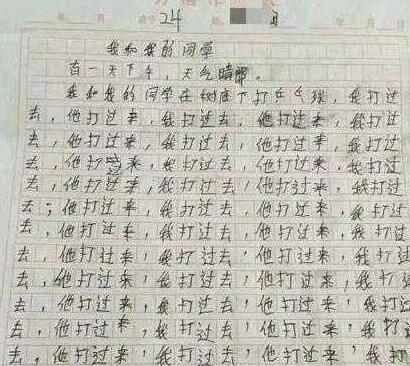 24
月
我和我的同学
百一天下午，天气晴朗。
我和我的同学在树底下打乒乓球，我打过
去，他打过来，我打过去，他打过来，我打过
去，他打过来，我打过去，他打过来，我打过
去，他打过来，我打过去，他打过来，我打过
去，他打过来，我打过去，他打过来，我打过
去，他打过来，我打过去，他打过来，我打过
去，他打过来，我打过去，他打过来，我打过
去，他打过来，我打过去，他打过来，我打过
去，他打过来，我打过去，他打过来，我打
去，他打过来，我打过去，他打过来，我打过
去，他打过来，我打过去，他打过来，我打
去，他打过来，我打过去，他打过来，我打